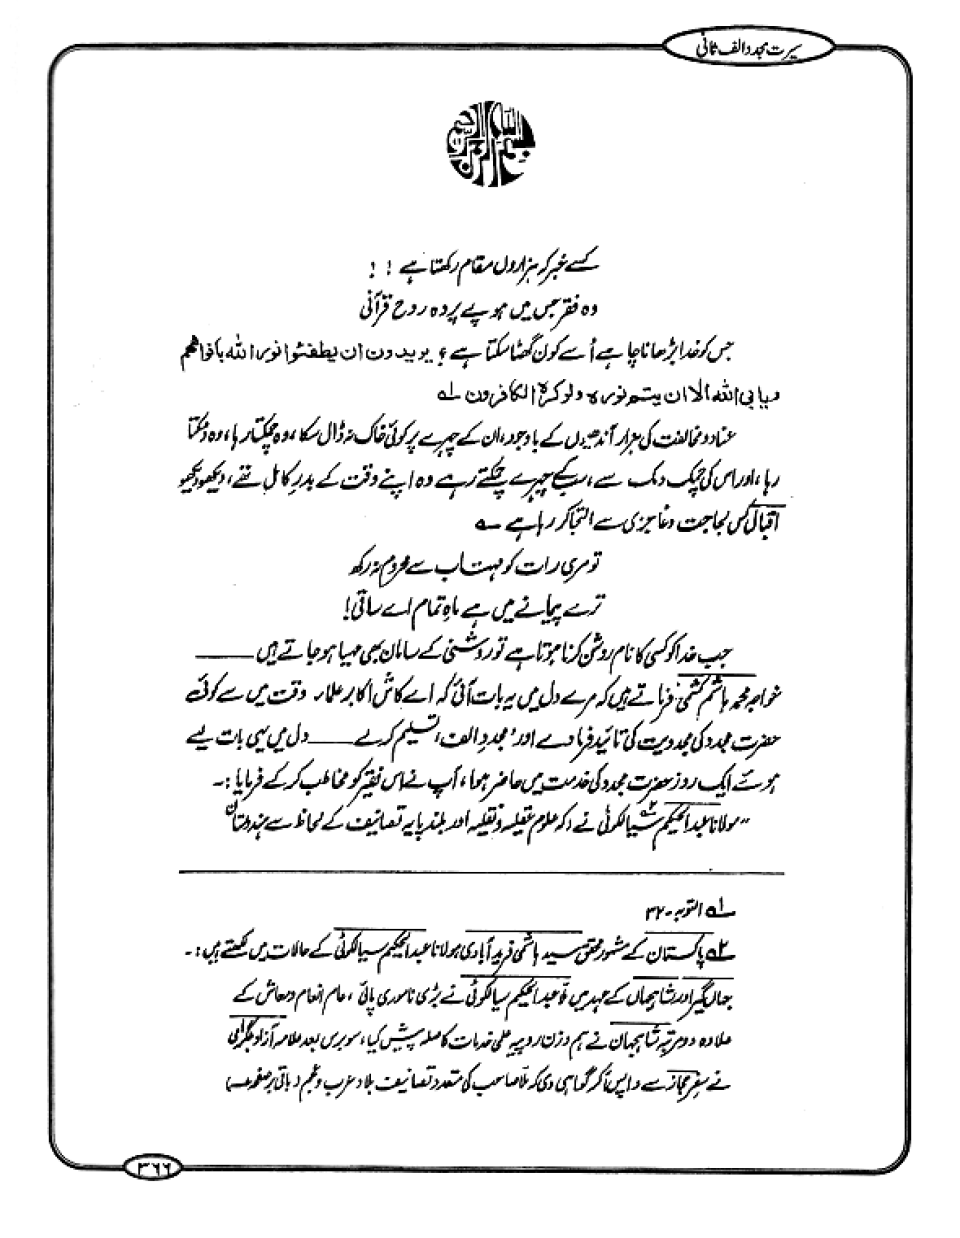 سیرت مجدد الف ثانی
بسم اللہ الرحمن الرحیم
کسے خبر کہ ہزاروں مقام رکھتا ہے ! !
وہ فقر جس میں ہو بے پردہ روح قرآنی
جس کو خدا بڑھانا چاہے اُسے کون گھٹا سکتا ہے ؟ یریدون ان یطفئوا نور اللہ بافواھھم
ویابی اللہ الا ان یتم نورہ ولو کرہ الکافرون ۱؎
عناد و مخالفت کی ہزار آندھیوں کے باوجود، ان کے چہرے پر کوئی خاک نہ ڈال سکا، وہ چمکتا رہا، وہ دمکتا
رہا، اور اس کی چمک دمک سے سب کے چہرے چمکتے رہے وہ اپنے وقت کے بدرِ کامل تھے، دیکھو دیکھو
اقبال کس لجاجت و عاجزی سے التجا کر رہا ہے ؎
تو مری رات کو مہتاب سے محروم نہ رکھ
ترے پیمانے میں ہے ماہِ تمام اے ساقی!
جب خدا کو کسی کا نام روشن کرنا ہوتا ہے تو روشنی کے سامان بھی مہیا ہو جاتے ہیں ——
خواجہ محمد ہاشم کشمی فرماتے ہیں کہ مرے دل میں یہ بات آئی کہ اے کاش اکابر علماء وقت میں سے کوئی
حضرت مجدد کی مجددیت کی تائید فرما دے اور 'مجددِ الف' تسلیم کرلے —— دل میں یہی بات لیے
ہوئے ایک روز حضرت مجدد کی خدمت میں حاضر ہوا، آپ نے اس فقیر کو مخاطب کر کے فرمایا :۔
"مولانا عبدالحکیم سیالکوٹی ۲؎ نے (کہ علوم عقلیہ و نقلیہ اور بلند پایہ تصانیف کے لحاظ سے ہندوستان
۱؎ التوبہ - ۳۲
۲؎ پاکستان کے مشہور محقق سید ہاشمی فرید آبادی مولانا عبدالحکیم سیالکوٹی کے حالات میں لکھتے ہیں :۔
جہاں گیر اور شاہجہاں کے عہد میں ملا عبدالحکیم سیالکوٹی نے بڑی ناموری پائی، عام انعام و معاش کے
علاوہ دو مرتبہ شاہجہان نے ہم وزن روپیہ علمی خدمات کا صلہ پیش کیا، سو برس بعد علامہ آزاد بلگرامی
نے سفر حجاز سے واپس آ کر گواہی دی کہ ملا صاحب کی متعدد تصانیف بلاد عرب و عجم (باقی بر صفحہ
۳۶۶